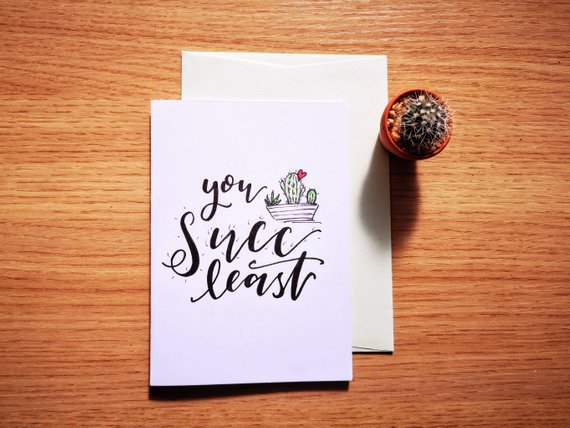 you
Succ
least